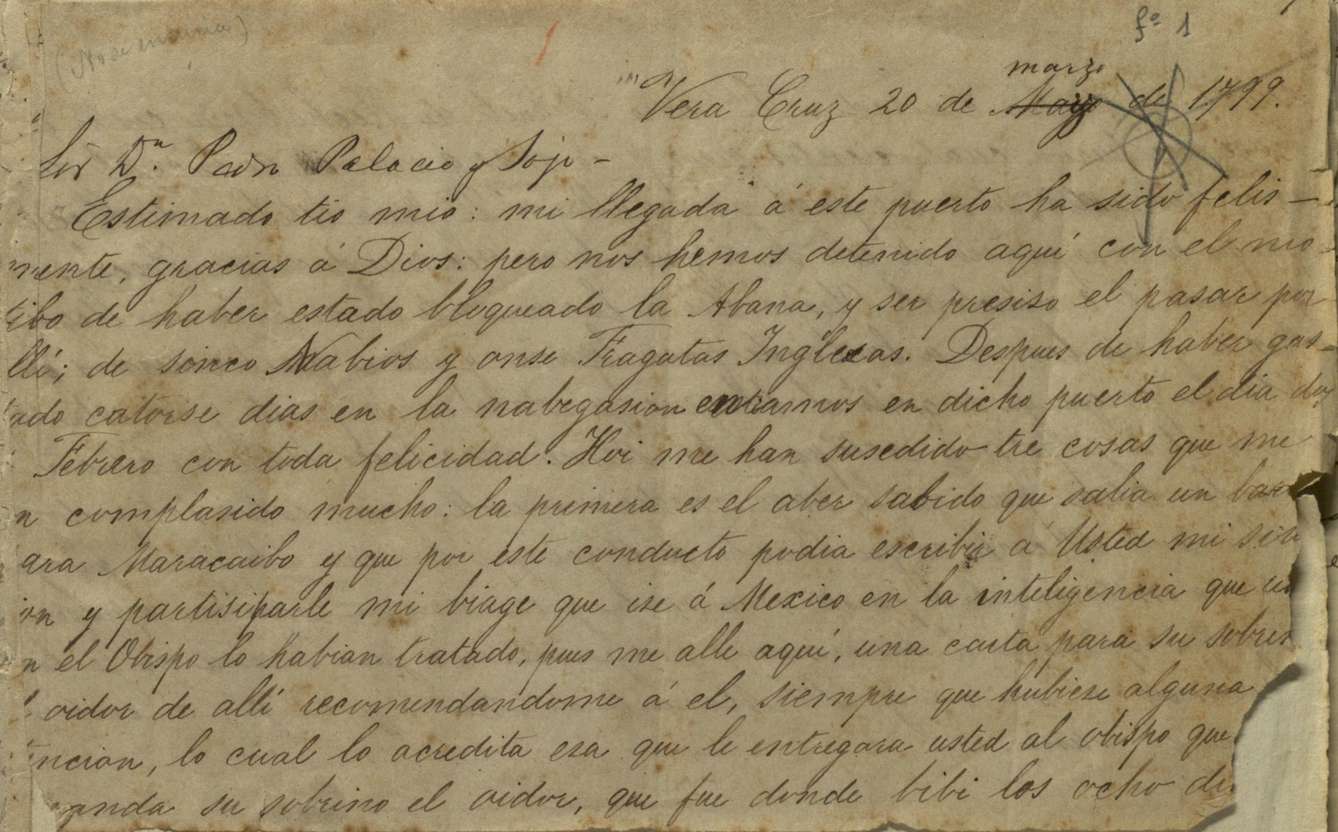 fº 1
marzo
"Vera Cruz 20 de May de 1799.
Sor Dn. Pedro Palacio y Sojo -
Estimado tio mio: mi llegada á este puerto ha sido felis-
mente, gracias á Dios: pero nos hemos detenido aquí con el mo-
tibo de haber estado bloqueado la Abana, y ser presiso el pasar por
llí; de sinco Nabios y onse Fragatas Inglesas. Despues de haber gas-
tado catorse dias en la nabegasion entramos en dicho puerto el dia dos
Febrero con toda felicidad. Hoi me han susedido tre cosas que me
n complasido mucho: la primera es el aber sabido que salia un bar
ara Maracaibo y que por este conducto podia escribir á Usted mi situ
ion y partisiparle mi biage que ise á Mexico en la inteligencia que us
n el Obispo lo habian tratado, pues me alle aquí, una carta para su sobrin
l oidor de allí recomendandome á el, siempre que hubiese alguna
tencion, lo cual lo acredita esa que le entregara usted al obispo que
manda su sobrino el oidor, que fue donde bibi los ocho di